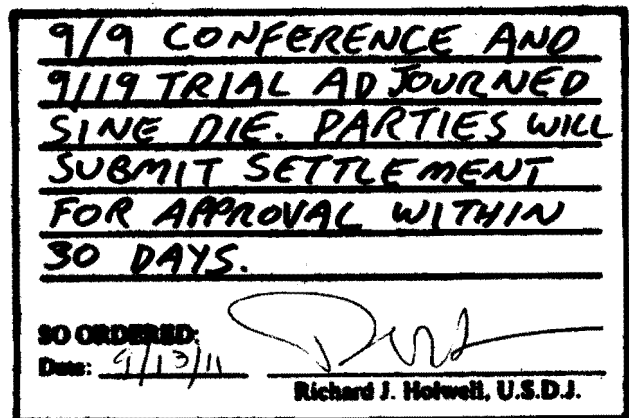 9/9 CONFERENCE AND
9/19 TRIAL ADJOURNED
SINE DIE. PARTIES WILL
SUBMIT SETTLEMENT
FOR APPROVAL WITHIN
30 DAYS.
SO ORDERED:
Date: 9/13/11
Richard J. Holwell, U.S.D.J.